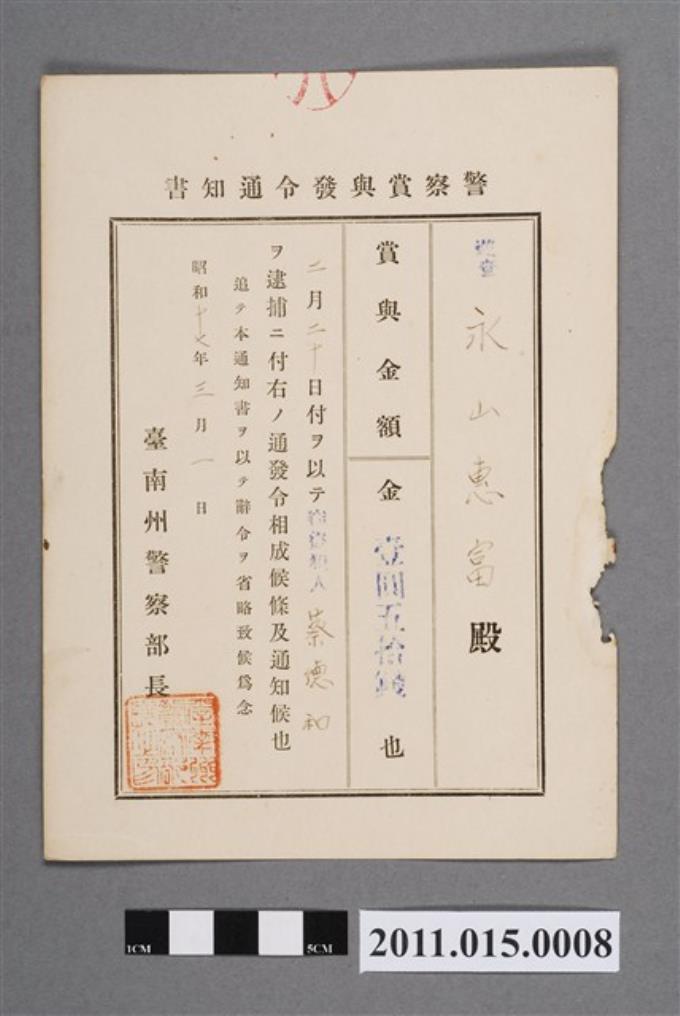 警察賞與發令通知書
巡查 永山惠富殿
賞與金額
金壹圓五拾錢也
二月二十日付ヲ以テ竊盜犯人蔡德和
ヲ逮捕ニ付右ノ通發令相成候條及通知候也
追テ本通知書ヲ以テ辭令ヲ省略致候爲念
昭和十七年三月一日
臺南州警察部長
1CM
5CM
2011.015.0008